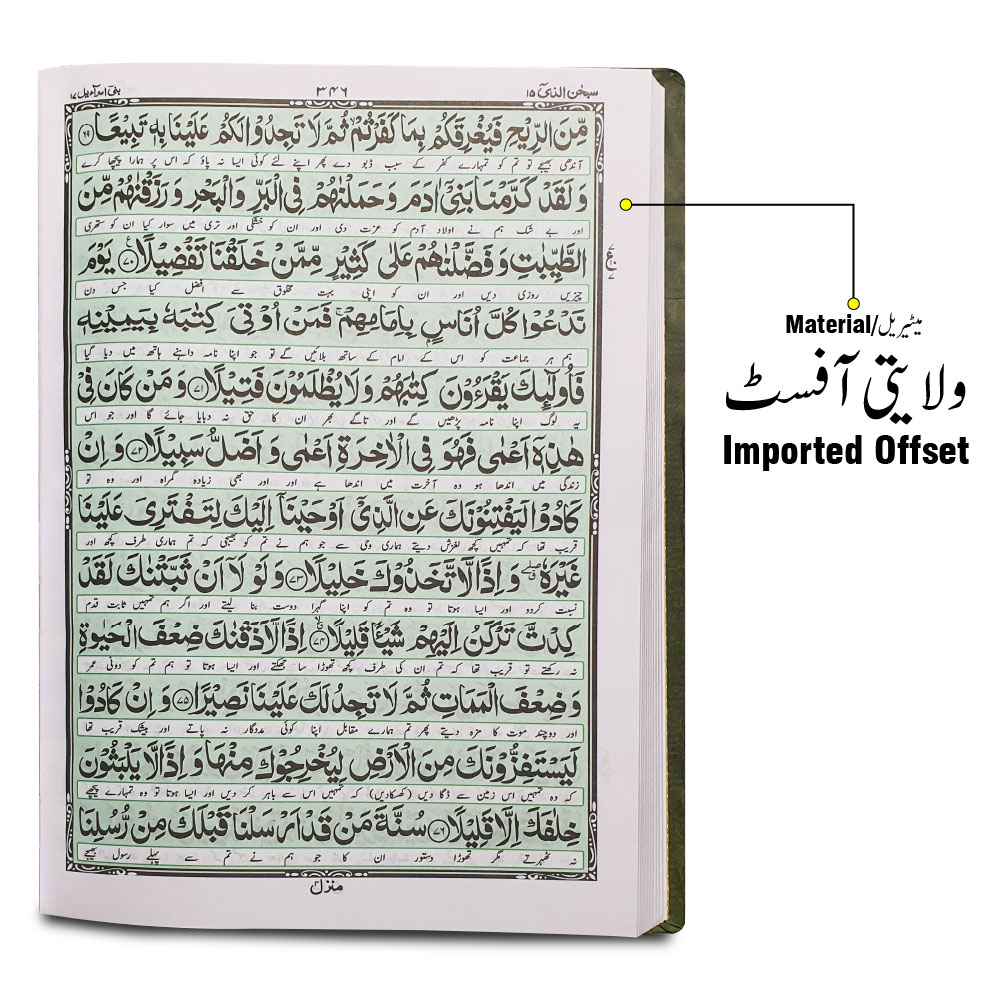 سبحٰن الذیٓ ۱۵
۳۴۶
بنیٓ اسرآءیل ۱۷
مِّنَ الرِّیْحِ فَیُغْرِقَكُمْ بِمَا كَفَرْتُمْ ۙ ثُمَّ لَا تَجِدُوْا لَكُمْ عَلَیْنَا بِهٖ تَبِیْعًا ﴿۶۹﴾
آندھی بھیجے تو تم کو تمہارے کفر کے سبب ڈبو دے پھر اپنے لئے کوئی ایسا نہ پاؤ کہ اس پر ہمارا پیچھا کرے
وَ لَقَدْ كَرَّمْنَا بَنِیْۤ اٰدَمَ وَ حَمَلْنٰهُمْ فِی الْبَرِّ وَ الْبَحْرِ وَ رَزَقْنٰهُمْ مِّنَ
اور بے شک ہم نے اولاد آدم کو عزت دی اور ان کو خشکی اور تری میں سوار کیا ان کو ستھری
الطَّیِّبٰتِ وَ فَضَّلْنٰهُمْ عَلٰى كَثِیْرٍ مِّمَّنْ خَلَقْنَا تَفْضِیْلًا ﴿۷۰﴾ یَوْمَ
چیزیں روزی دیں اور ان کو اپنی بہت مخلوق سے افضل کیا جس دن
نَدْعُوْا كُلَّ اُنَاسٍۭ بِاِمَامِهِمْ ۚ فَمَنْ اُوْتِیَ كِتٰبَهٗ بِیَمِیْنِهٖ
ہم ہر جماعت کو اس کے امام کے ساتھ بلائیں گے تو جو اپنا نامہ داہنے ہاتھ میں دیا گیا
فَاُولٰٓىِٕكَ یَقْرَءُوْنَ كِتٰبَهُمْ وَ لَا یُظْلَمُوْنَ فَتِیْلًا ﴿۷۱﴾ وَ مَنْ كَانَ فِیْ
یہ لوگ اپنا نامہ پڑھیں گے اور تاگے بھر ان کا حق نہ دبایا جائے گا اور جو اس
هٰذِهٖۤ اَعْمٰى فَهُوَ فِی الْاٰخِرَةِ اَعْمٰى وَ اَضَلُّ سَبِیْلًا ﴿۷۲﴾ وَ اِنْ
زندگی میں اندھا ہو وہ آخرت میں اندھا ہے اور اور بھی زیادہ گمراہ اور وہ تو
كَادُوْا لَیَفْتِنُوْنَكَ عَنِ الَّذِیْۤ اَوْحَیْنَاۤ اِلَیْكَ لِتَفْتَرِیَ عَلَیْنَا
قریب تھا کہ تمہیں کچھ لغزش دیتے ہماری وحی سے جو ہم نے تم کو بھیجی کہ تم ہماری طرف کچھ اور
غَیْرَهٗ ۖۗ وَ اِذًا لَّاتَّخَذُوْكَ خَلِیْلًا ﴿۷۳﴾ وَ لَوْ لَاۤ اَنْ ثَبَّتْنٰكَ لَقَدْ
نسبت کردو اور ایسا ہوتا تو وہ تم کو اپنا گہرا دوست بنا لیتے اور اگر ہم تمہیں ثابت قدم
كِدْتَّ تَرْكَنُ اِلَیْهِمْ شَیْــٴًـا قَلِیْلًا ﴿۷۴﴾ اِذًا لَّاَذَقْنٰكَ ضِعْفَ الْحَیٰوةِ
نہ رکھتے تو قریب تھا کہ تم ان کی طرف کچھ تھوڑا سا جھکتے اور ایسا ہوتا تو ہم تم کو دونی عمر
وَ ضِعْفَ الْمَمَاتِ ثُمَّ لَا تَجِدُ لَكَ عَلَیْنَا نَصِیْرًا ﴿۷۵﴾ وَ اِنْ كَادُوْا
اور دوچند موت کا مزہ دیتے پھر تم ہمارے مقابل اپنا کوئی مددگار نہ پاتے اور بیشک قریب تھا
لَیَسْتَفِزُّوْنَكَ مِنَ الْاَرْضِ لِیُخْرِجُوْكَ مِنْهَا وَ اِذًا لَّا یَلْبَثُوْنَ
کہ وہ تمہیں اس زمین سے ڈگا دیں (کھسکادیں) کہ تمہیں اس سے باہر کر دیں اور ایسا ہوتا تو وہ تمہارے پیچھے
خِلٰفَكَ اِلَّا قَلِیْلًا ﴿۷۶﴾ سُنَّةَ مَنْ قَدْ اَرْسَلْنَا قَبْلَكَ مِنْ رُّسُلِنَا
نہ ٹھہرتے مگر تھوڑا دستور ان کا جو ہم نے تم سے پہلے رسول بھیجے
منزل
Material/میٹیریل
ولایتی آفسٹ
Imported Offset